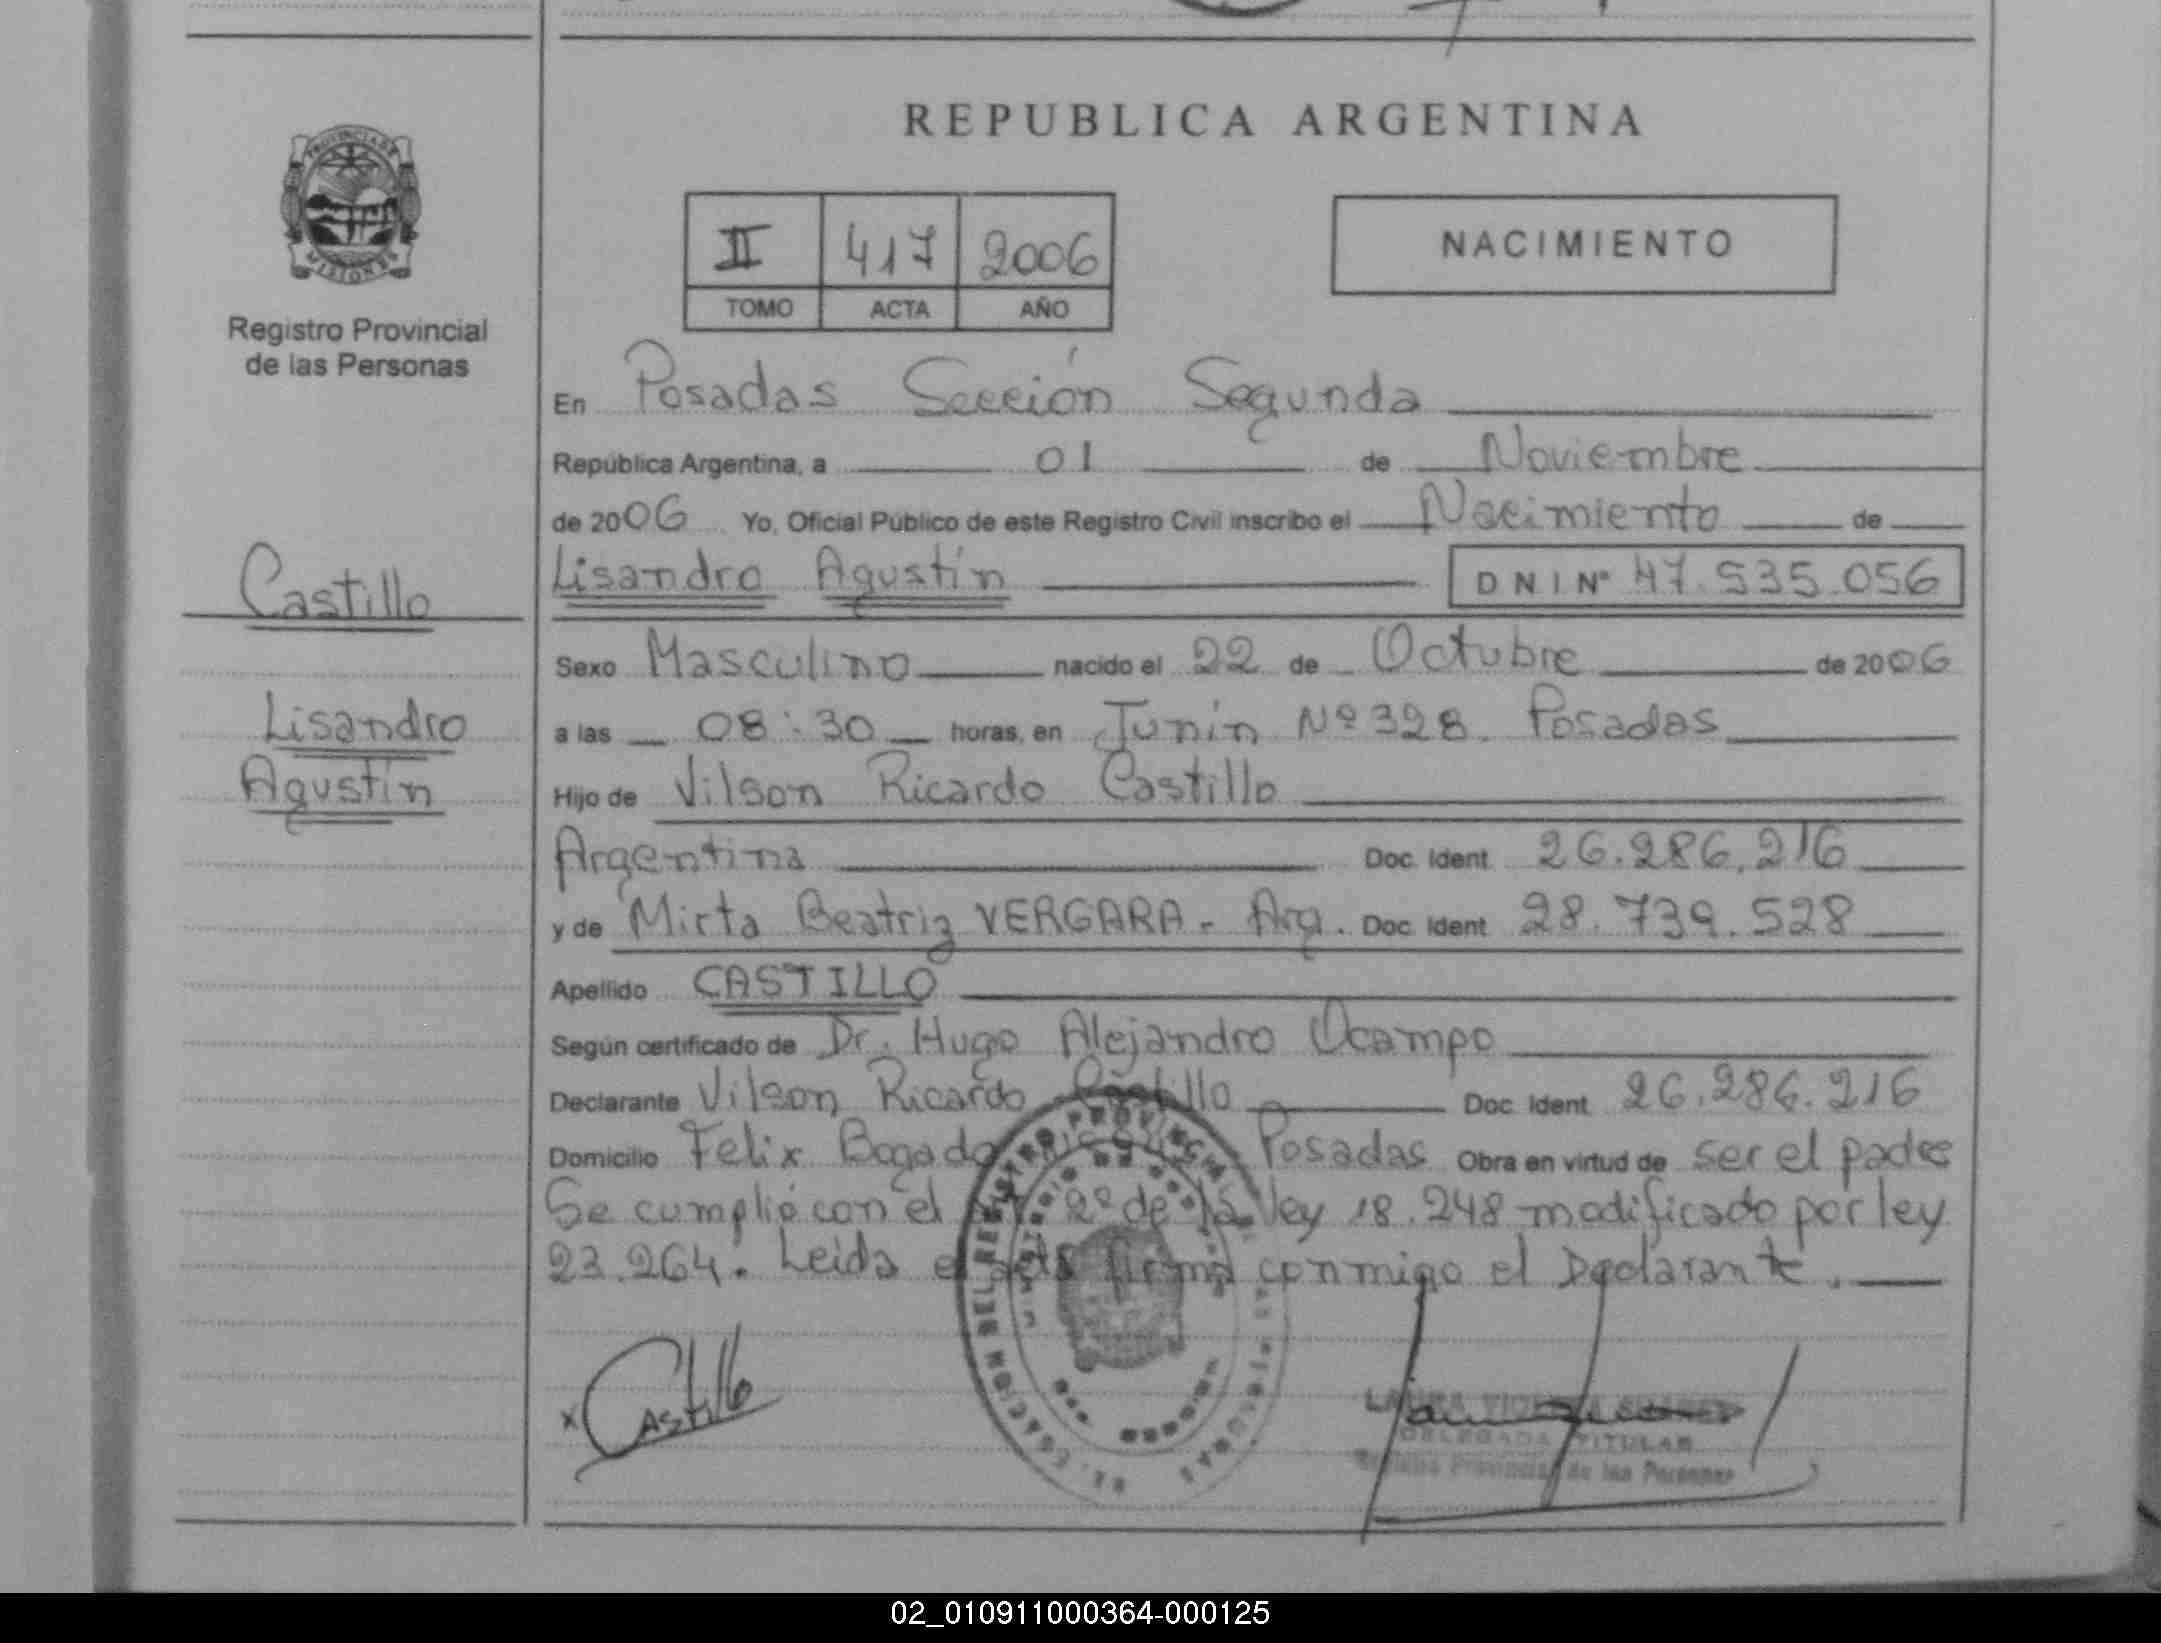 REPUBLICA ARGENTINA
PROVINCIA DE
MISIONES
Registro Provincial
de las Personas
II 417 2006
TOMO ACTA AÑO
NACIMIENTO
En Posadas Sección Segunda
República Argentina, a 01 de Noviembre
de 2006 Yo, Oficial Público de este Registro Civil inscribo el Nacimiento de
Castillo
Lisandro Agustín DNI Nº 47.535.056
Sexo Masculino nacido el 22 de Octubre de 2006
Lisandro
a las 08:30 horas, en Junín Nº 328. Posadas
Agustín
Hijo de Vilson Ricardo Castillo
Argentina Doc. Ident 26.286.216
y de Mirta Beatriz VERGARA - Arg. Doc. Ident 28.739.528
Apellido CASTILLO
Según certificado de Dr. Hugo Alejandro Ocampo
Declarante Vilson Ricardo Castillo Doc. Ident 26.286.216
Domicilio Felix Bogado Posadas Obra en virtud de ser el padre
Se cumplió con el art 2º de la ley 18.248 modificado por ley
23.264. Leida el acta firma conmigo el Declarante.
x Castillo
DELEGADA TITULAR
Registro Provincial de las Personas
DEL REGISTRO PROVINCIAL
02_010911000364-000125